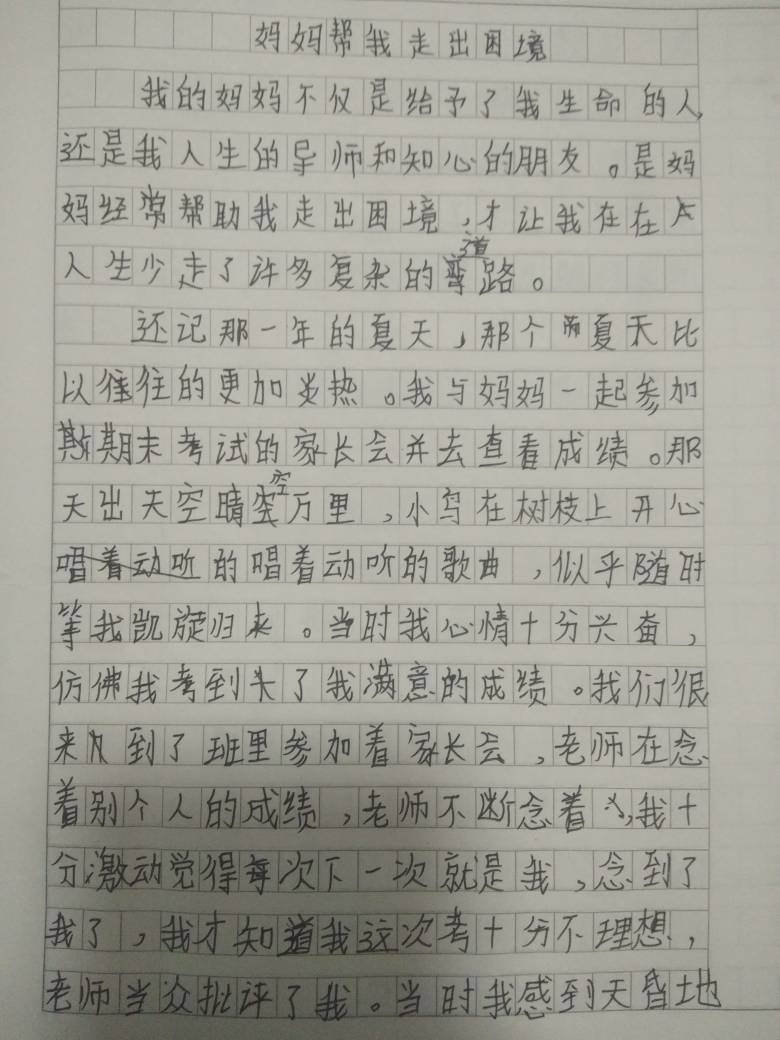 妈妈帮我走出困境
我的妈妈不仅是给予了我生命的人,
还是我人生的导师和知心的朋友。是妈
妈经常帮助我走出困境,才让我在在
人生少走了许多复杂的弯道路。
还记那一年的夏天,那个夏天比
以往往的更加炎热。我与妈妈一起参加
期末考试的家长会并去查看成绩。那
天出天空晴空万里,小鸟在树枝上开心
唱着动听的唱着动听的歌曲,似乎随时
等我凯旋归来。当时我心情十分兴奋,
仿佛我考到头了我满意的成绩。我们很
来到了班里参加着家长会,老师在念
着别个人的成绩,老师不断念着,我十
分激动觉得每次下一次就是我,念到了
我了,我才知道我这次考十分不理想,
老师当众批评了我。当时我感到天昏地